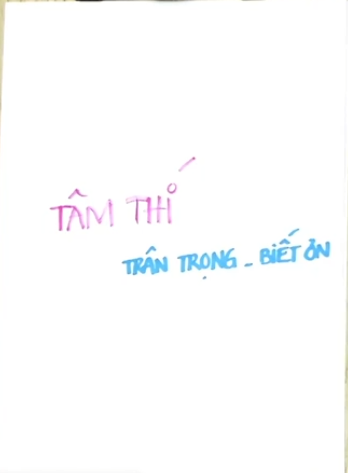 TÂM THÍ
TRÂN TRỌNG - BIẾT ƠN